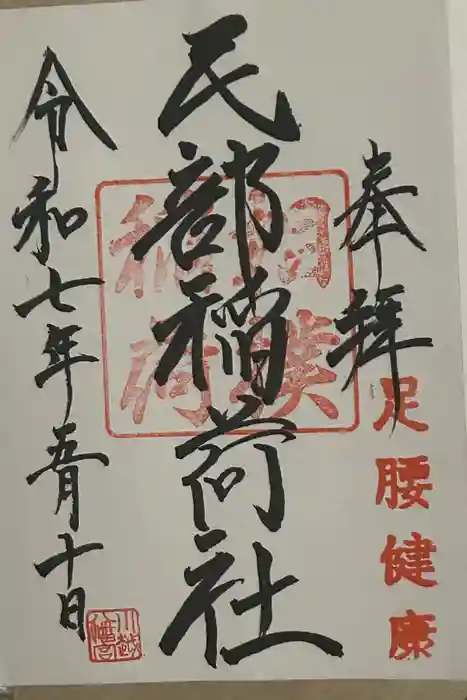 奉拝
足腰健康
民部稲荷社
相撲
稲荷
令和七年五月十日
川越
八幡宮